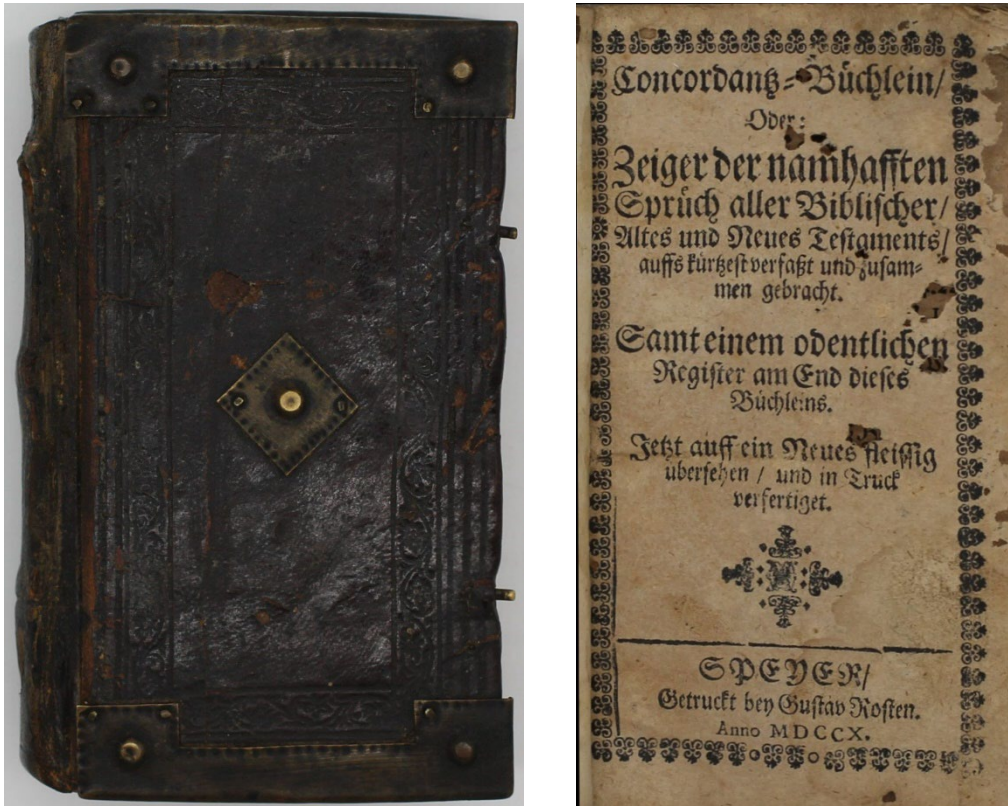 Concordantz-Büchlein/
Oder:
Zeiger der namhafften
Sprüch aller Biblischer/
Altes und Neues Testaments/
auffs kürtzest verfaßt und zusam-
men gebracht.
Samt einem odentlichen
Register am End dieses
Büchleins.
Jetzt auff ein Neues fleissig
übersehen / und in Truck
verfertiget.
SPEYER/
Getruckt bey Gustav Rosten.
Anno MDCCX.